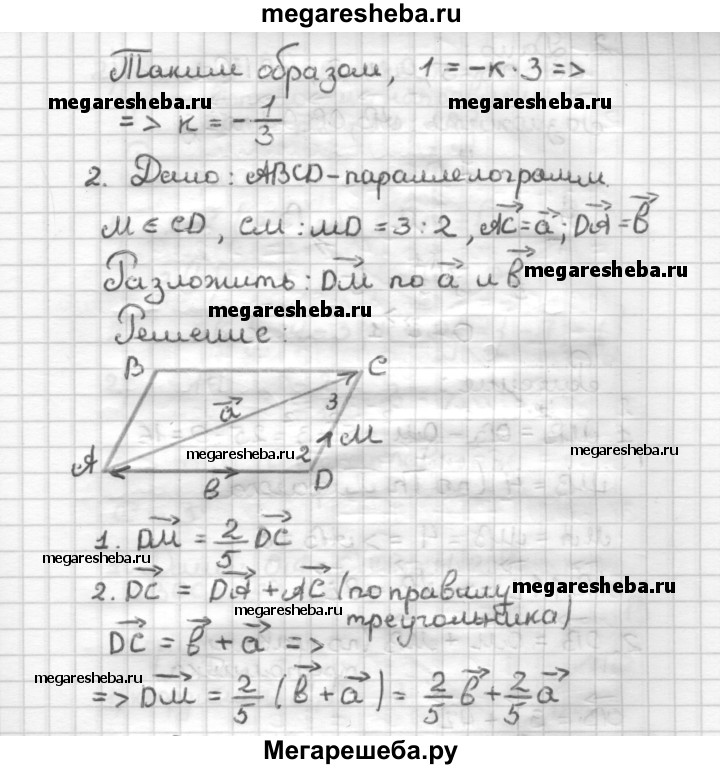 megaresheba.ru
Таким образом, 1 = -к · 3 =>
megaresheba.ru megaresheba.ru
=> к = - 1/3
2. Дано: ABCD - параллелограмм.
M ∈ CD, CM : MD = 3 : 2, AC→ = a→; DA→ = b→
Разложить: DM→ по a→ и b→
megaresheba.ru
megaresheba.ru
Решение:
B C
a→ 3
M
megaresheba.ru megaresheba.ru
A 2
b→ D
1. DM→ = 2/5 DC→
megaresheba.ru
2. DC→ = DA→ + AC→ (по правилу
megaresheba.ru
megaresheba.ru
треугольника)
DC→ = b→ + a→ =>
megaresheba.ru
=> DM→ = 2/5 (b→ + a→) = 2/5 b→ + 2/5 a→
Мегарешеба.ру